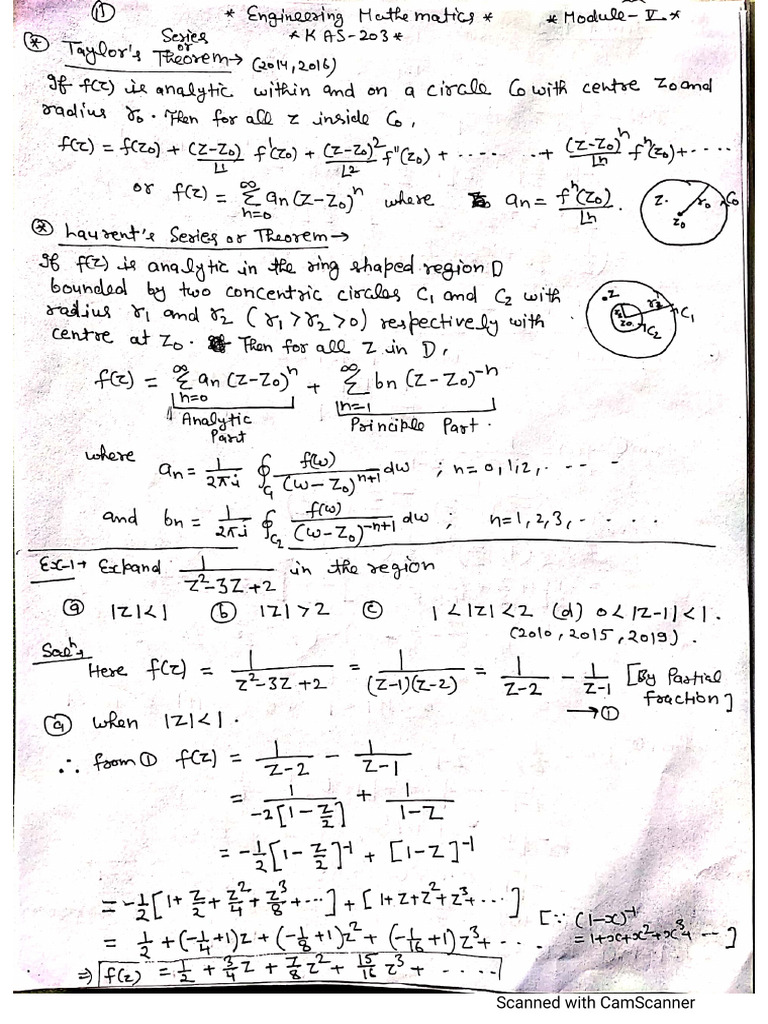 ① * Engineering Mathematics * * Module-V *
Series * KAS-203 *
⊛ Taylor's or Theorem → (2014, 2016)
If f(z) is analytic within and on a circle C₀ with centre z₀ and
radius r₀. Then for all z inside C₀,
f(z) = f(z₀) + (z-z₀)/⌊1 f'(z₀) + (z-z₀)²/⌊2 f''(z₀) + ...... + (z-z₀)ⁿ/⌊n fⁿ(z₀) + ....
or f(z) = ∞Σn=0 an(z-z₀)ⁿ where an = fⁿ(z₀)/⌊n .
z. r₀ C₀ z₀
⊛ Laurent's Series or Theorem →
If f(z) is analytic in the ring shaped region D
bounded by two concentric circles C₁ and C₂ with
radius r₁ and r₂ (r₁>r₂>0) respectively with
centre at z₀. Then for all z in D,
.z r₂ C₁ z₀ C₂
f(z) = ∞Σn=0 an(z-z₀)ⁿ + ∞Σn=1 bn(z-z₀)⁻ⁿ
Analytic Part Principle Part.
where an = 1/2πi ∮C₁ f(w)/(w-z₀)ⁿ⁺¹ dw ; n=0,1,2,.....
and bn = 1/2πi ∮C₂ f(w)/(w-z₀)⁻ⁿ⁺¹ dw ; n=1,2,3,.....
Ex-1→ Expand 1/z²-3z+2 in the region
ⓐ |z|<1 ⓑ |z|>2 ⓒ 1<|z|<2 (d) 0<|z-1|<1.
(2010, 2015, 2019).
Solⁿ
Here f(z) = 1/z²-3z+2 = 1/(z-1)(z-2) = 1/z-2 - 1/z-1 [By Partial fraction]
→①
ⓐ when |z|<1.
∴ from ① f(z) = 1/z-2 - 1/z-1
= 1/-2[1-z/2] + 1/1-z
= -1/2[1-z/2]⁻¹ + [1-z]⁻¹
= -1/2[1+z/2+z²/4+z³/8+...] + [1+z+z²+z³+...]
[∵ (1-x)⁻¹ = 1+x+x²+x³+...]
= 1/2 + (-1/4+1)z + (-1/8+1)z² + (-1/16+1)z³+.....
⇒ f(z) = 1/2 + 3/4 z + 7/8 z² + 15/16 z³ + .....
Scanned with CamScanner